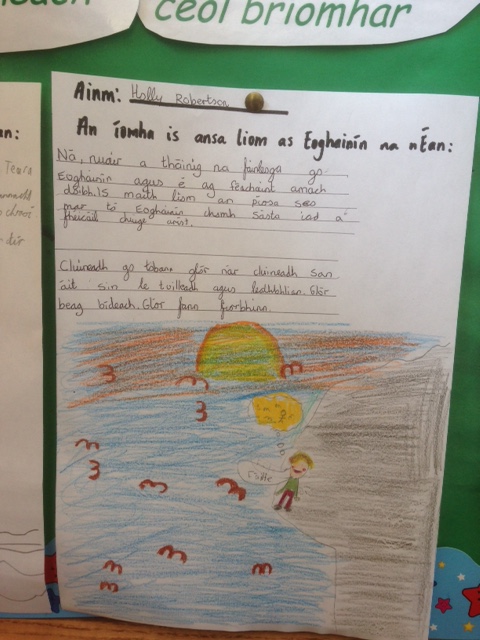 ceol bríomhar
Ainm: Holly Robertson
An íomha is ansa liom as Eoghainín na nÉan:
Nó, nuair a tháinig na fáinleoga go
Eoghainín agus é ag féachaint amach
dóibh. Is maith liom an píosa seo
mar tá Eoghainín chomh sásta iad a
fheiceáil chuige arís.
Cluineadh go tobann glór nár cluineadh san
áit sin le tuilleadh agus leathbhliain. Glór
beag bídeach. Glór fann fíorbhinn.